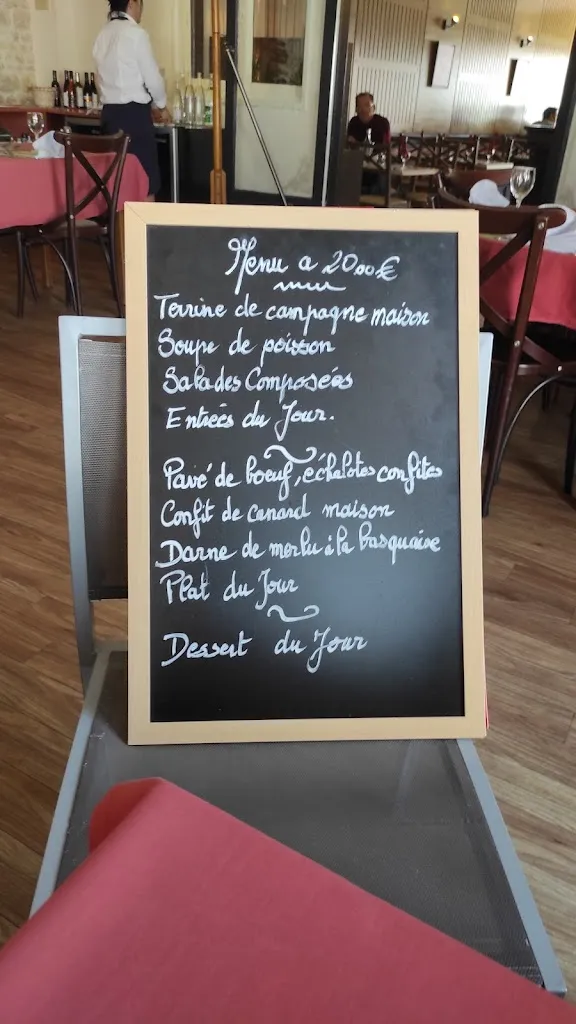 Menu a 20,00€
Terrine de campagne maison
Soupe de poisson
Salades Composées
Entrées du Jour.
Pavé de boeuf, échalotes confites
Confit de canard maison
Darne de merlu à la basquaise
Plat du Jour
Dessert du Jour